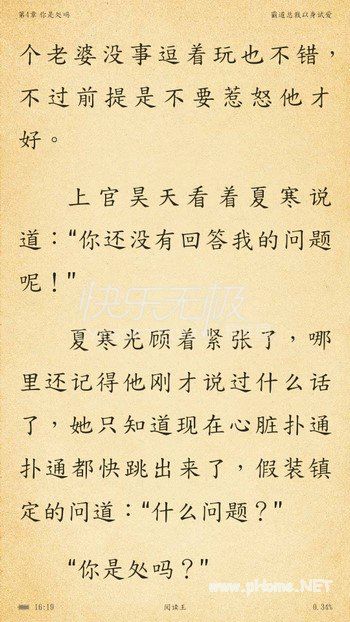 第4章 你是处吗 霸道总裁以身试爱
个老婆没事逗着玩也不错，
不过前提是不要惹怒他才
好。
上官昊天看着夏寒说
道："你还没有回答我的问题
呢！"
快乐无极
夏寒光顾着紧张了，哪
里还记得他刚才说过什么话
了，她只知道现在心脏扑通
扑通都快跳出来了，假装镇
定的问道："什么问题？"
"你是处吗？"
www.pHome.NET
16:19 阅读王 0.34%